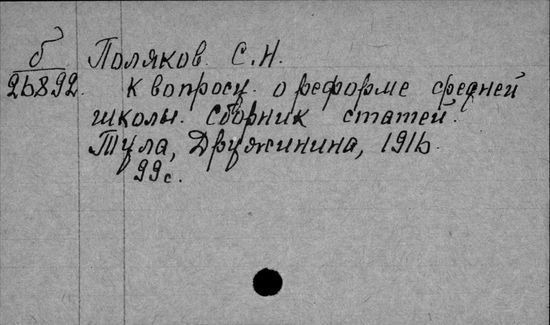 б Поляков. С.Н.
26892. К вопросу о реформе средней
школы. Сборник статей.
Тула, Дружинина, 1916.
99с.